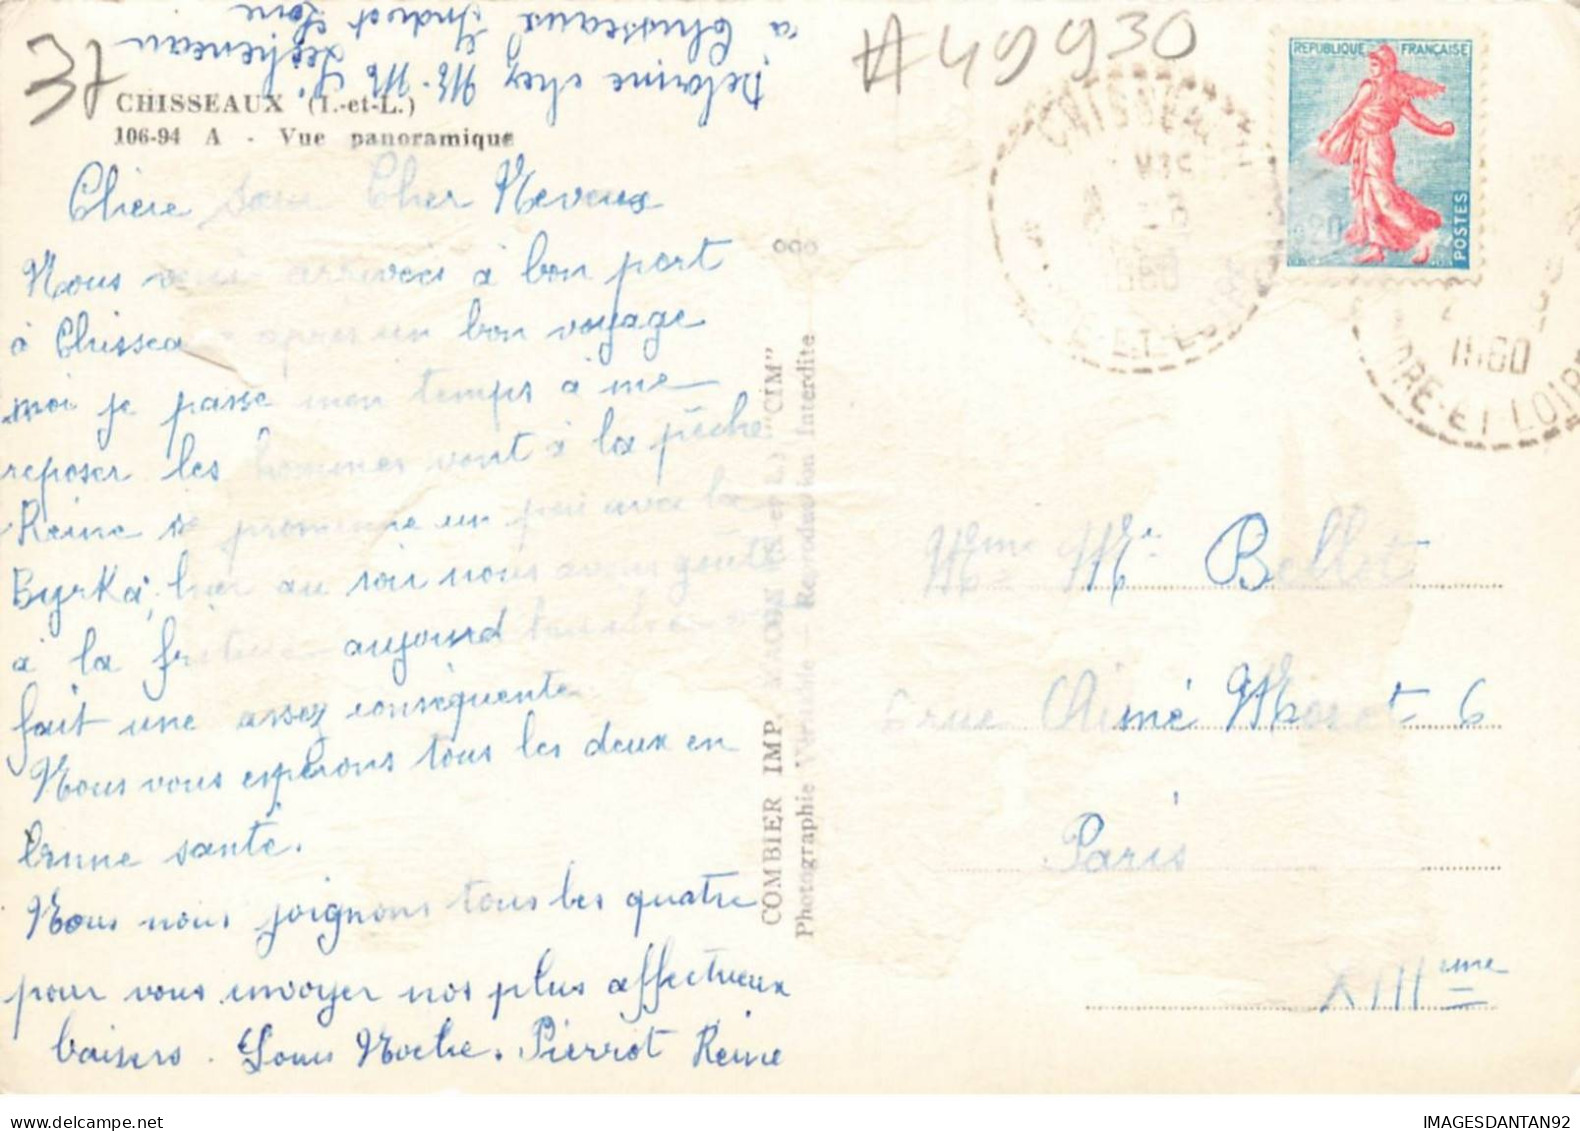 37
#49930
Delarine chez Mr. Mme
à Chisseaux Indre et Loire
CHISSEAUX (I.-et-L.)
106-94 A - Vue panoramique
Chère Cher Neveux
Nous arrivées à bon port
à Chissea après un bon voyage
moi je passe mon temps à me
reposer les hommes vont à la pêche
Reine se promène un peu avec la
Byrka, hier au soir nous avons goûté
à la friture aujourd
fait une assez conséquente
Nous vous esperons tous les deux en
bonne santé.
Nous nous joignons tous les quatre
pour vous envoyer nos plus affectueux
baisers. Pierrot Reine
COMBIER IMP. MACON "CIM"
Photographie Véritable — Reproduction Interdite
REPUBLIQUE FRANÇAISE
0,20
POSTES
CHISSEAUX
1960
ET-LOIRE
1960
INDRE-ET-LOIRE
Mme Mr Bellot
6 rue Aimé Morot 6
Paris
XIIIeme
IMAGESDANTAN92